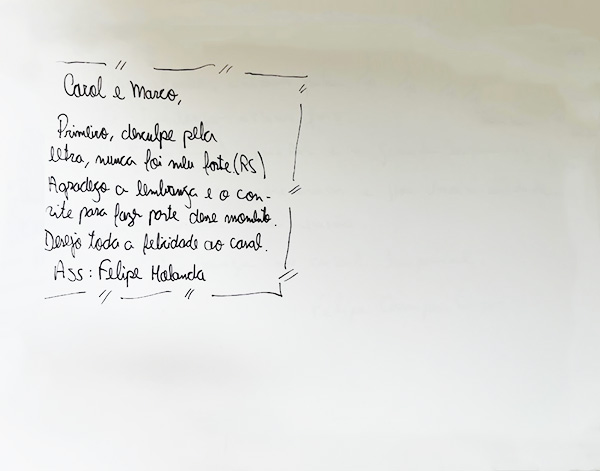 Carol e Marco,
Primeiro, desculpe pela
letra, nunca foi meu forte (RS)
Agradeço a lembrança e o con-
vite para fazer parte desse momento.
Desejo toda a felicidade ao casal.
Ass: Felipe Holanda